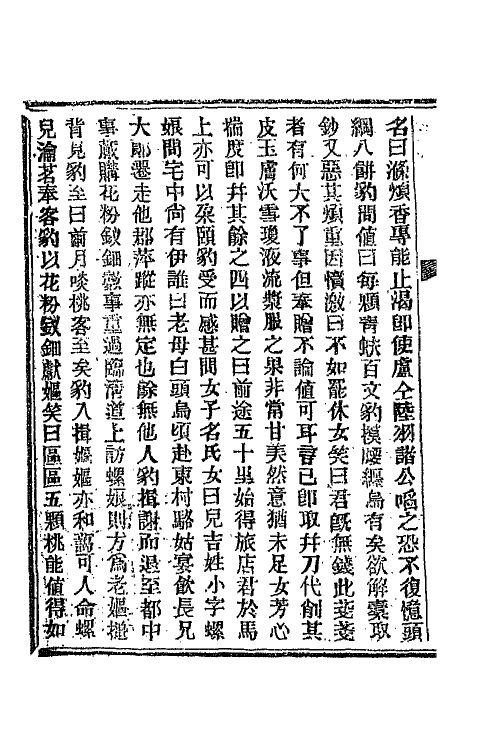 名曰滌煩香專能止渴卽使盧仝陸羽諸公啜之恐不復憶頭
綱八餅豹問値曰每顆靑蚨百文豹摸腰纏烏有矣欲解囊取
鈔又惡其煩重因憤激曰不如罷休女笑曰君旣無錢此戔戔
者有何大不了事但奉贈不論値可耳言已卽取幷刀代削其
皮玉膚沃雪瓊液流漿服之果非常甘美然意猶未足女芳心
揣度卽幷其餘之四以贈之曰前途五十里始得旅店君於馬
上亦可以朶頤豹受而感甚問女子名氏女曰兒吉姓小字螺
娘問宅中尙有伊誰曰老母白頭鳥頃赴東村駱姑宴飮長兄
大郞遷走他郡萍蹤亦無定也餘無他人豹揖謝而退至都中
事蕆購花粉釵鈿數事重過臨淸道上訪螺娘則方爲老嫗搥
背見豹至曰前月啖桃客至矣豹入揖嫗嫗亦和藹可人命螺
兒瀹茗奉客豹以花粉釵鈿獻嫗笑曰區區五顆桃能値得如